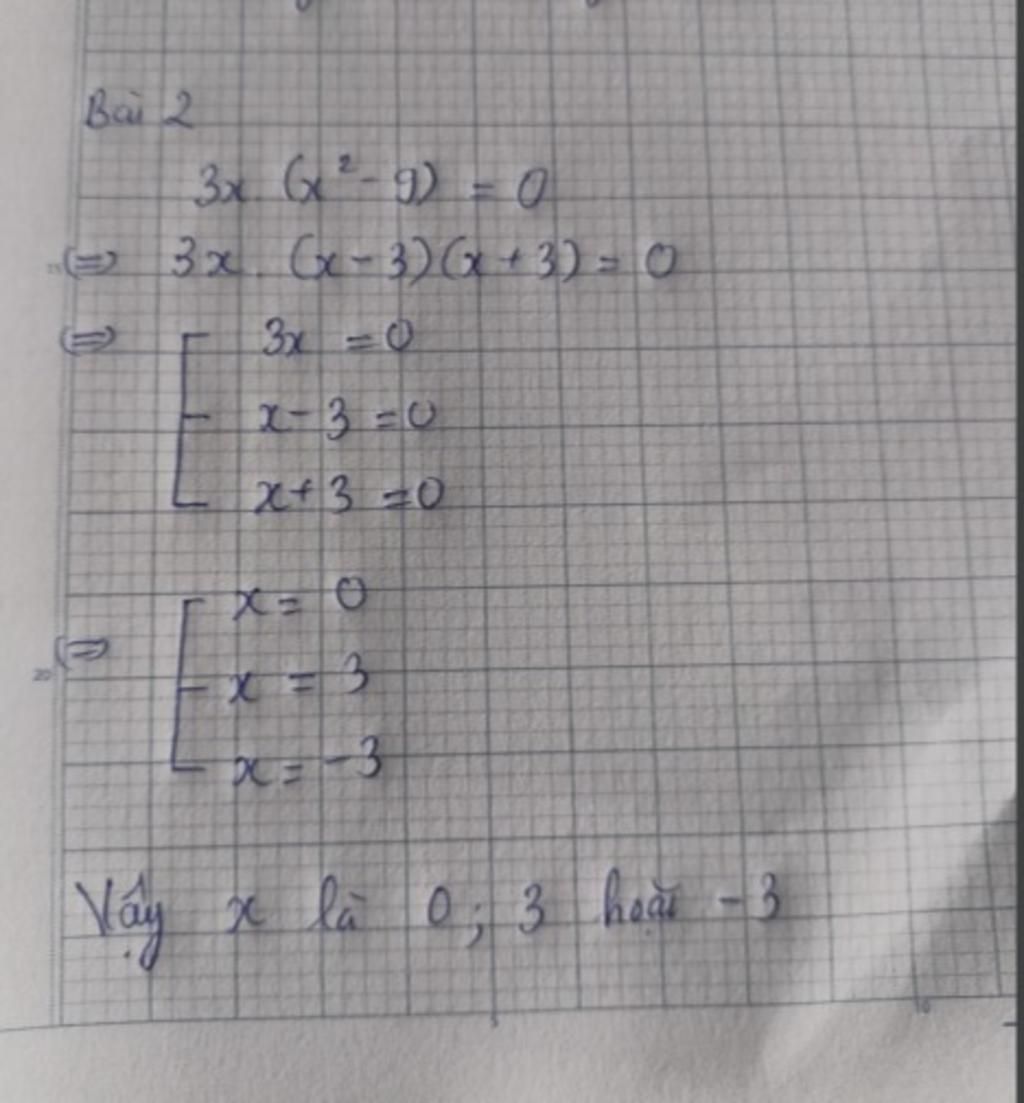 Bài 2
3x (x² - 9) = 0
(=) 3x. (x - 3)(x + 3) = 0
(=) [ 3x = 0
x - 3 = 0
x + 3 = 0
(=) [ x = 0
x = 3
x = -3
Vậy x là 0; 3 hoặc -3